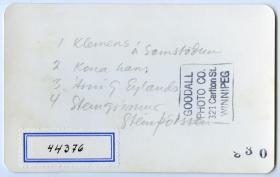 1 Klemens á Sámstöðum
2 Kona hans
3 Árni G Eylands
4 Steingrímur
Steinþórsson
GOODALL
PHOTO CO.
321 Carlton St.
WINNIPEG
44376
830